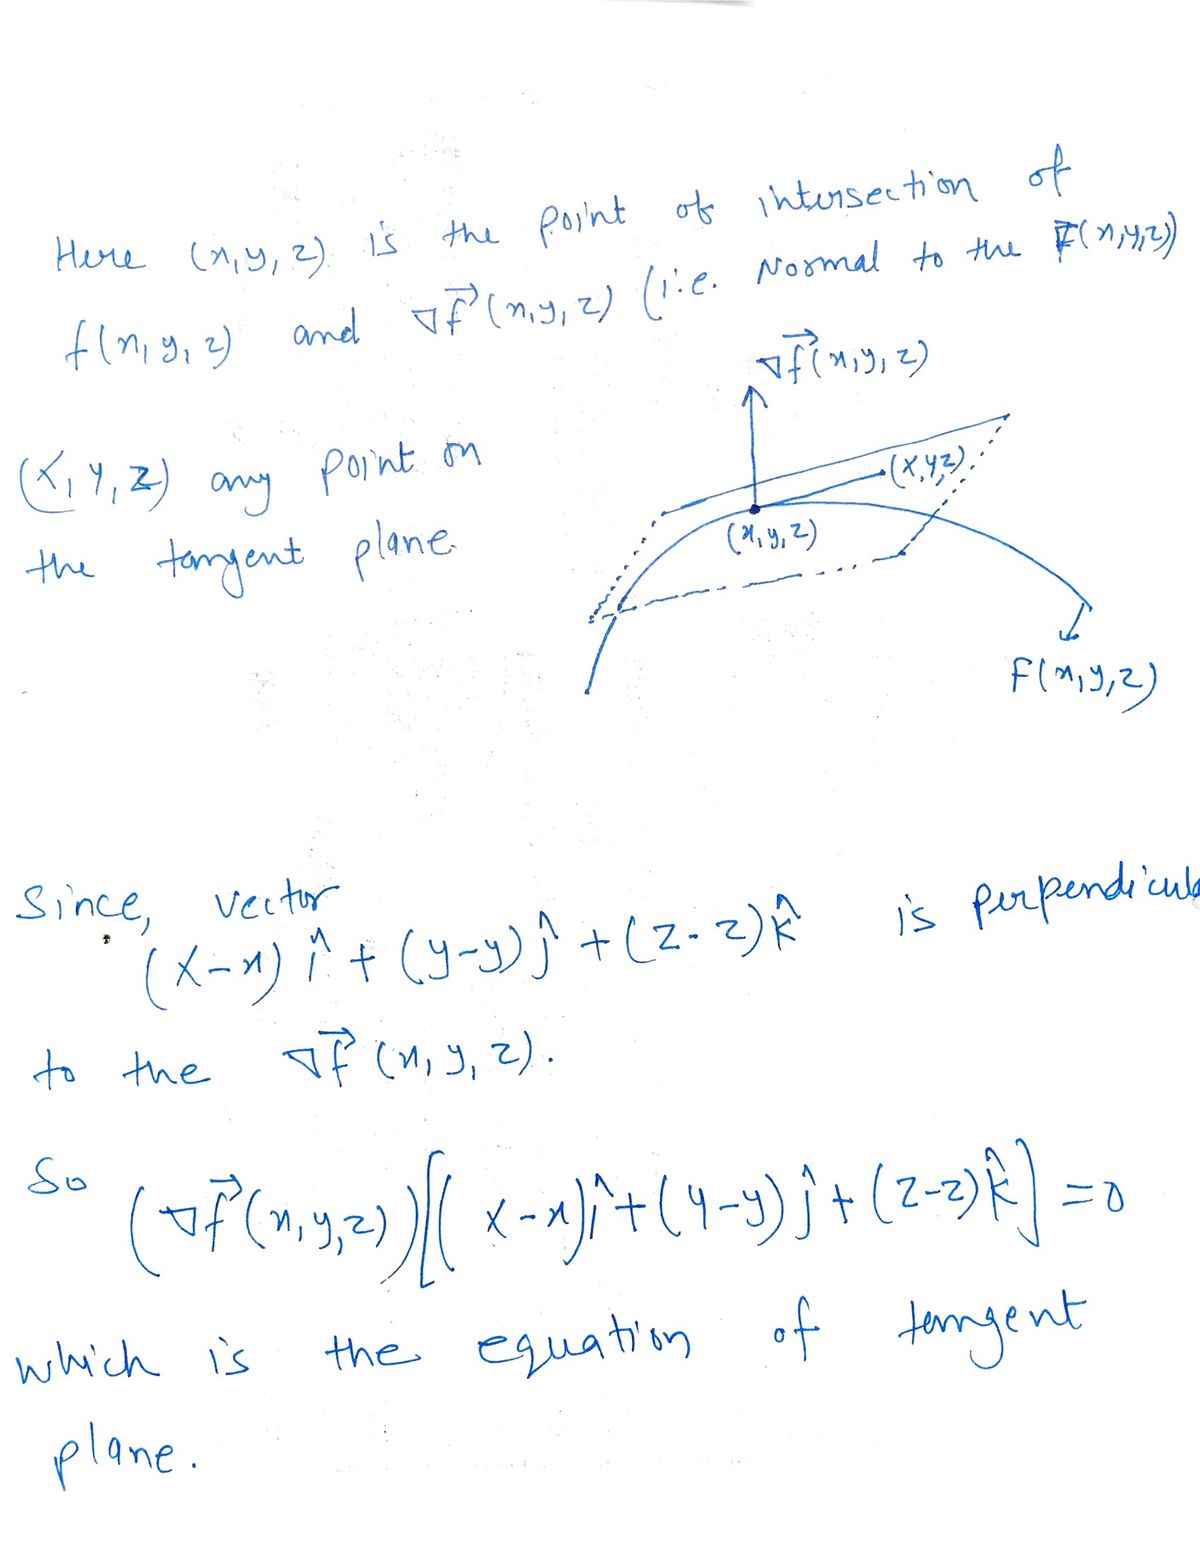 Here (x,y,z) is the point of intersection of
f(x,y,z) and ∇f⃗(x,y,z) (i.e. Normal to the F(x,y,z))
∇f⃗(x,y,z)
(X,Y,Z) any point on
the tangent plane.
(X,Y,Z)
(x,y,z)
F(x,y,z)
Since, vector
(X-x)î + (y-y)ĵ + (z-z)k̂ is perpendicula
to the ∇f⃗(x,y,z).
So (∇f⃗(x,y,z))[(X-x)î+(Y-y)ĵ+(Z-z)k̂]=0
which is the equation of tangent
plane.